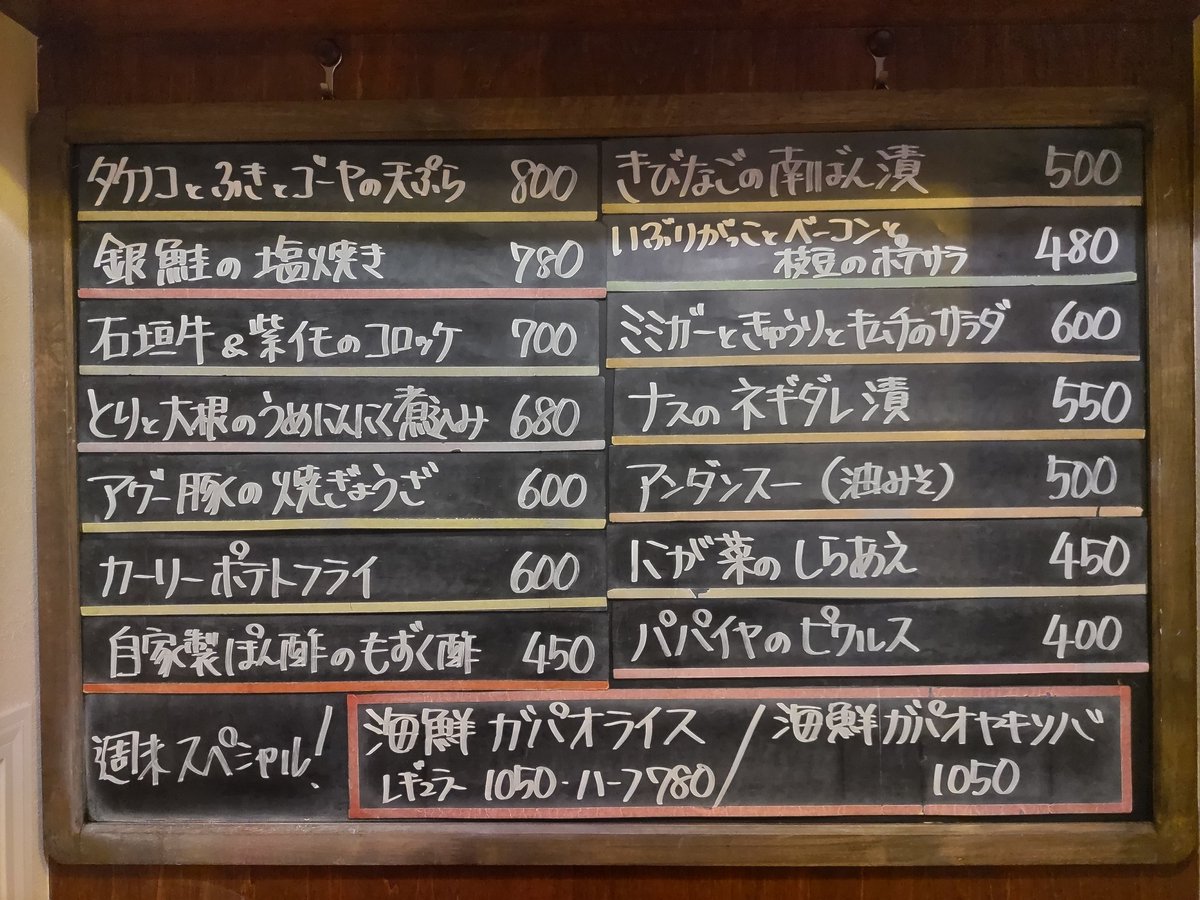 タケノコとふきとゴーヤの天ぷら 800
銀鮭の塩焼き 780
石垣牛&紫イモのコロッケ 700
とりと大根のうめにんにく煮込み 680
アグー豚の焼ぎょうざ 600
カーリーポテトフライ 600
自家製ぽん酢のもずく酢 450
きびなごの南ばん漬 500
いぶりがっことベーコンと
枝豆のポテサラ 480
ミミガーときゅうりとキムチのサラダ 600
ナスのネギダレ漬 550
アンダンスー(油みそ) 500
にが菜のしらあえ 450
パパイヤのピクルス 400
週末スペシャル!
海鮮ガパオライス
レギュラー 1050・ハーフ780
/
海鮮ガパオヤキソバ
1050